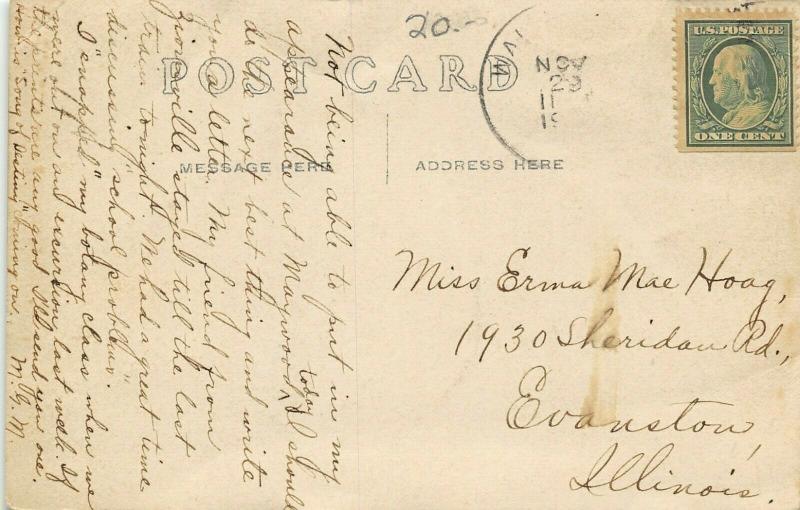 20.-
POST CARD
NOV
29
U.S. POSTAGE
ONE CENT
MESSAGE HERE
ADDRESS HERE
Not being able to put in my
appearance at Maywood, today I should
do the next best thing and write
you a letter. My friend from
stayed till the last
train tonight. We had a great time
discussing "school problems."
I "snapped" my botany class when we
were out on an excursion last week. If
the prints are any good I'll send you one.
How is "Song of Destiny" coming on.
M. G. M.
Miss Erma Mae Hoag,
1930 Sheridan Rd.,
Evanston,
Illinois.